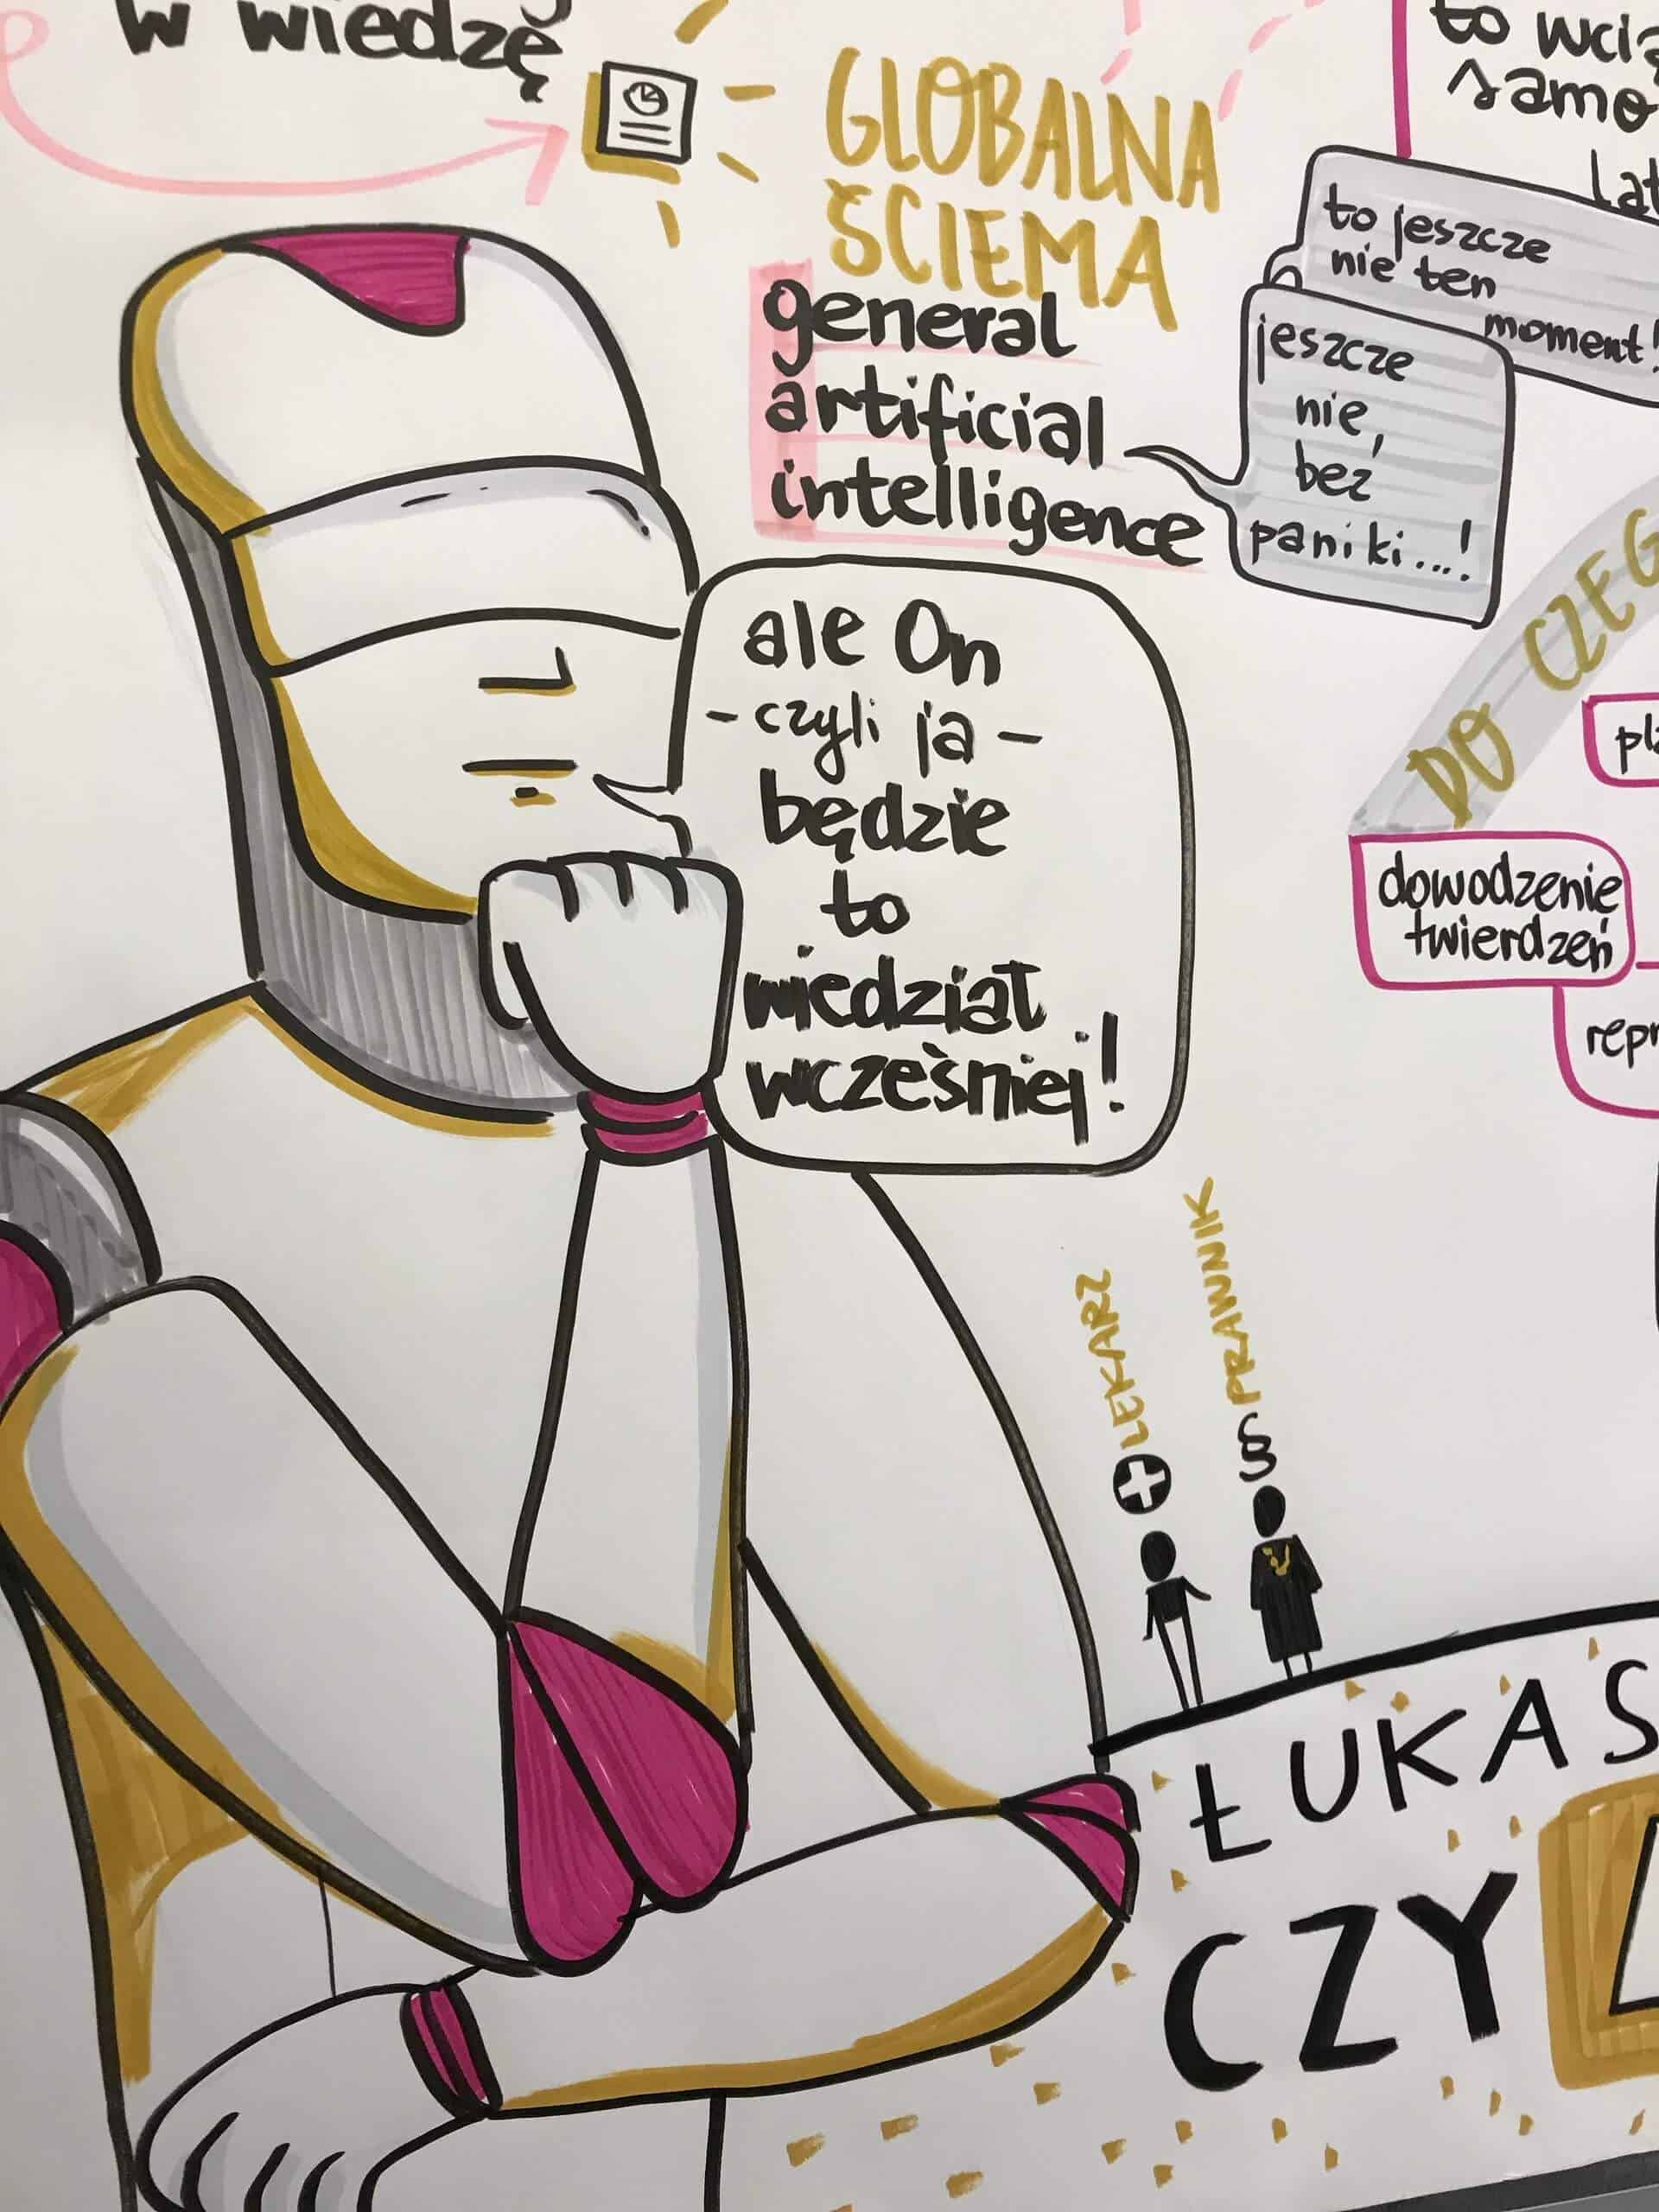 w wiedzę
GLOBALNA
ŚCIEMA
general
artificial
intelligence
to jeszcze
nie ten
moment!
jeszcze
nie,
bez
paniki...!
ale On
- czyli ja -
będzie
to
wiedział
wcześniej!
to
samo
DO CZEG
dowodzenie
twierdzeń
LEKARZ
§ PRAWNIK
ŁUKAS
CZY